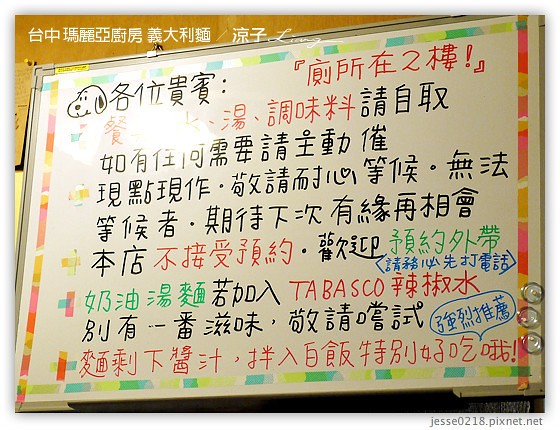 台中 瑪麗亞廚房 義大利麵 ／ 涼子 Living
『廁所在2樓!』
各位貴賓：
餐 水、湯、調味料請自取
如有任何需要請主動 催
現點現作。敬請耐心等候。無法
等候者。期待下次有緣再相會
本店不接受預約。歡迎 預約外帶
〈請務必先打電話〉
奶油湯麵若加入 TABASCO 辣椒水
別有一番滋味，敬請嚐試
強烈推薦
麵剩下醬汁，拌入白飯特別好吃哦!
jesse0218.pixnet.net